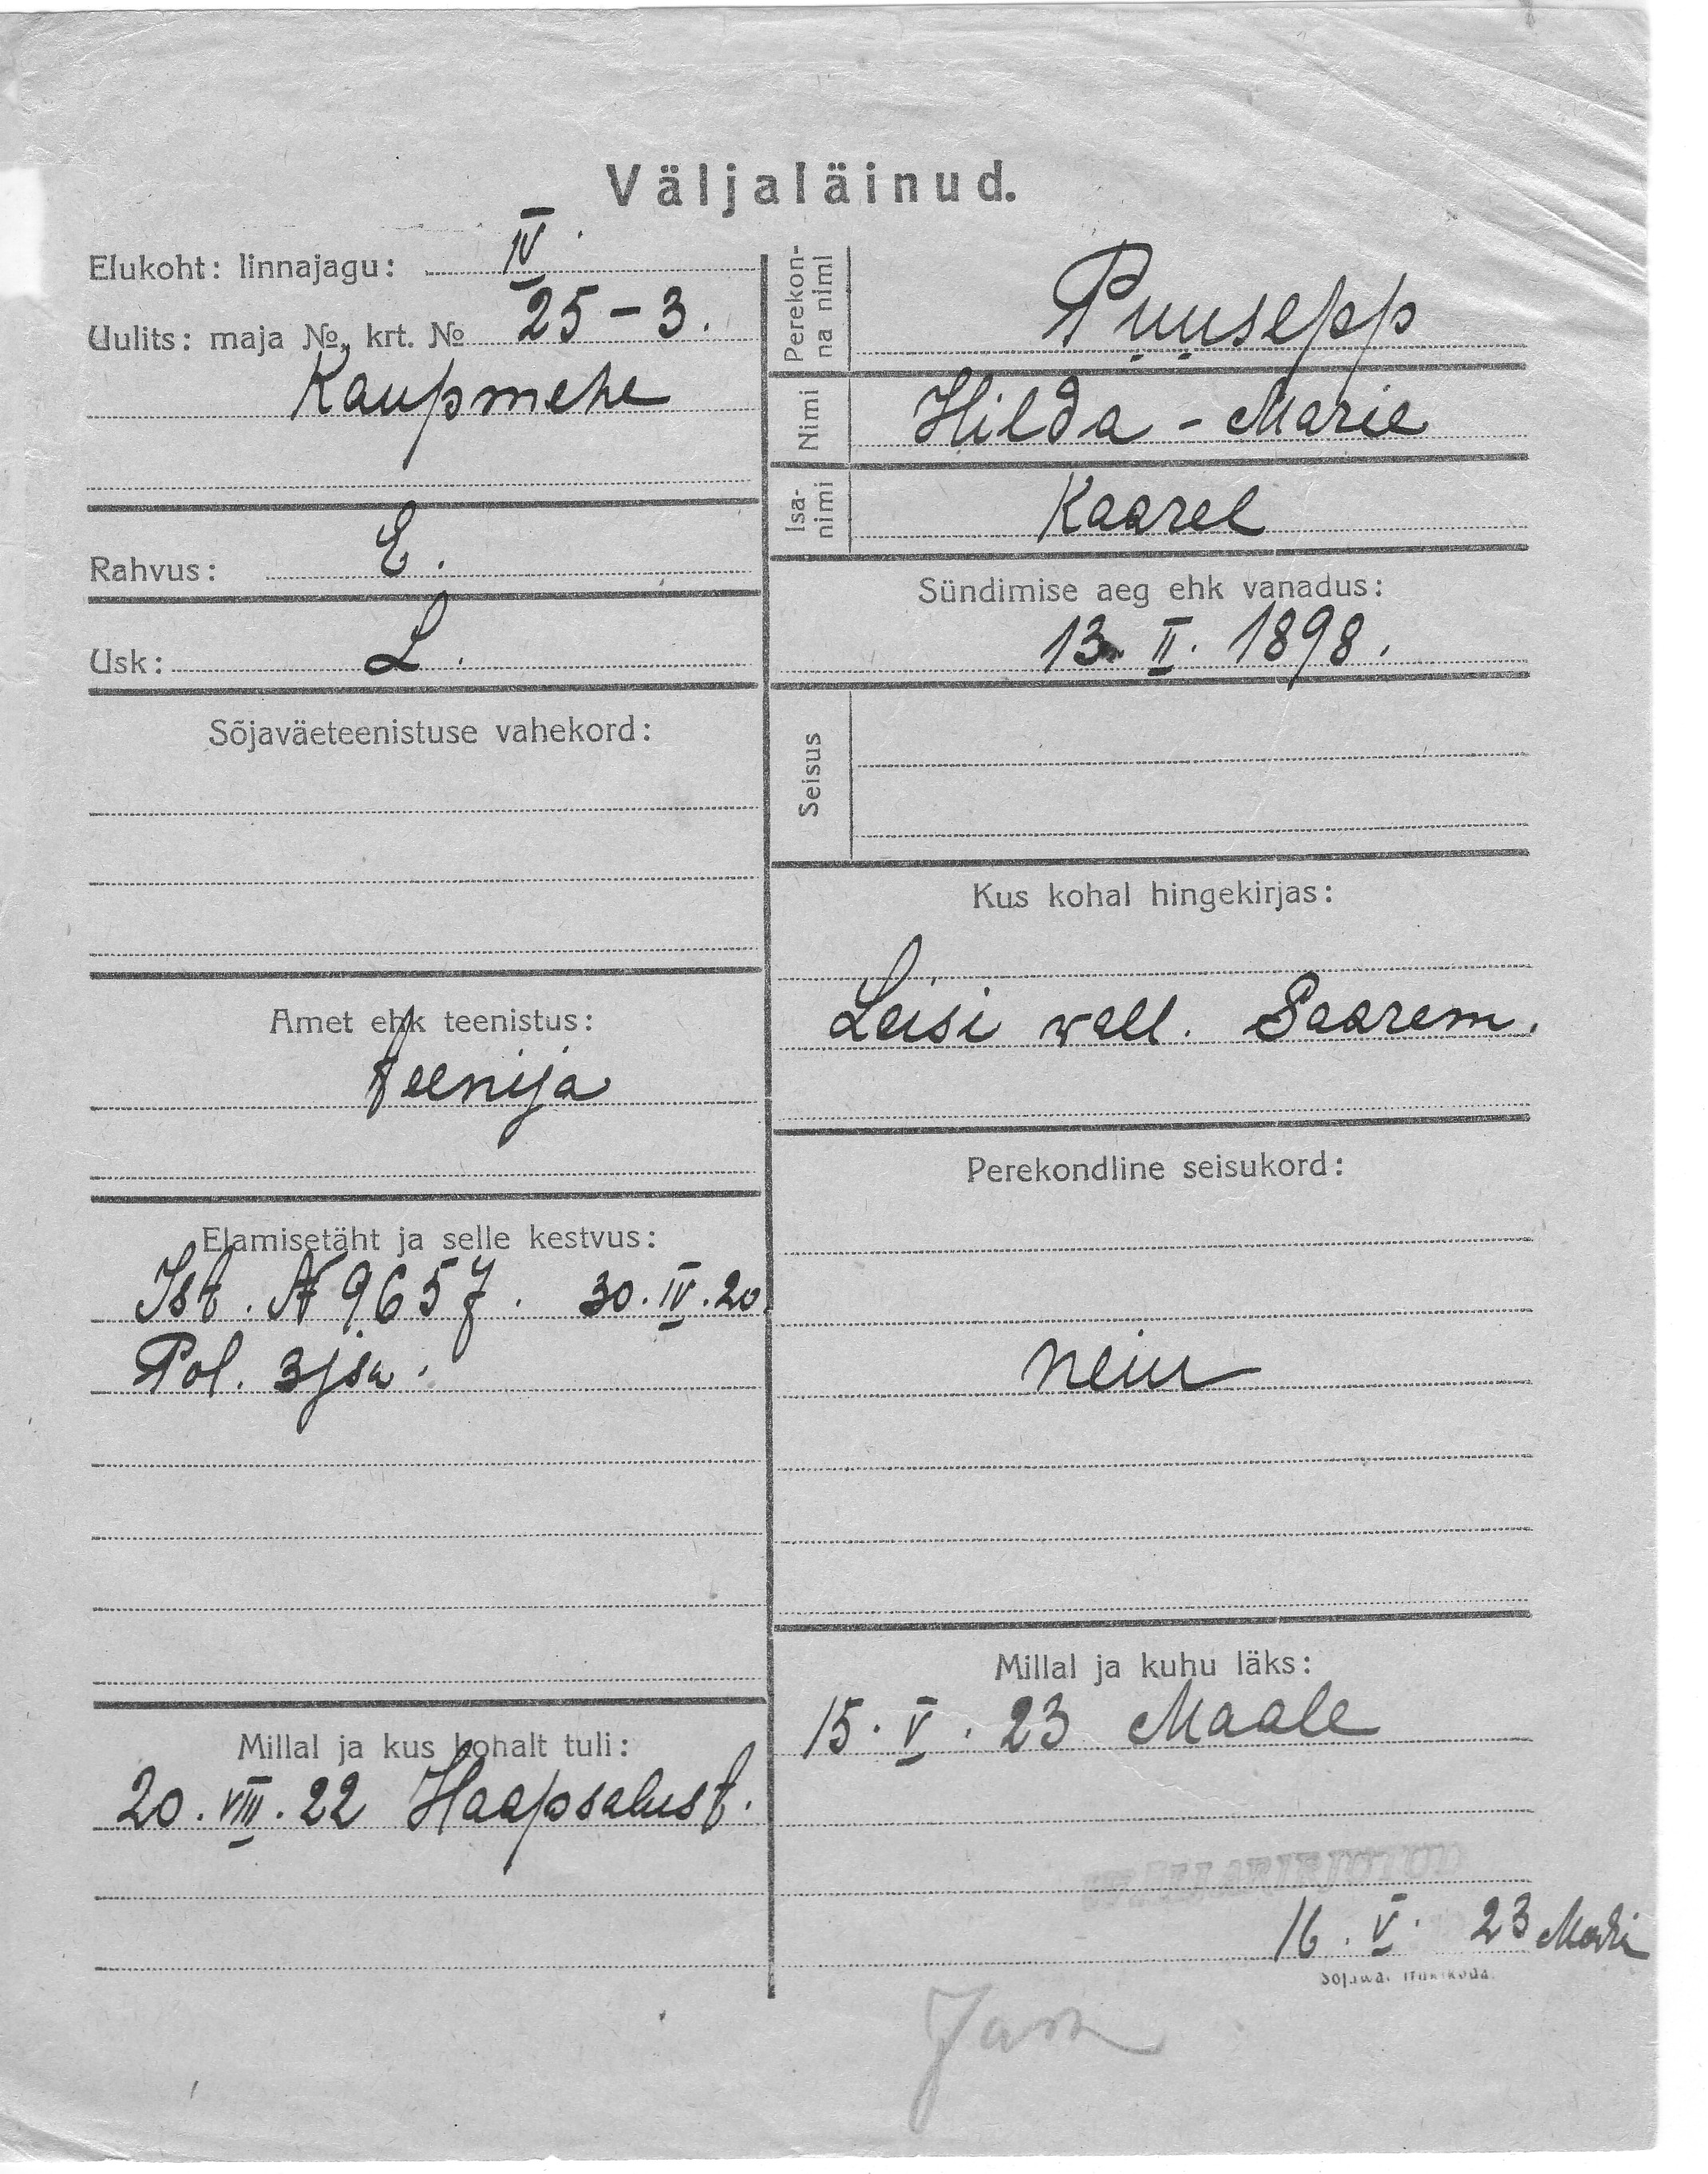 Väljaläinud.
Elukoht: linnajagu: IV.
Uulits: maja №, krt. № 25-3.
Kaupmehe
Rahvus: E.
Usk: L.
Sõjaväeteenistuse vahekord:
Amet ehk teenistus:
teenija
Elamisetäht ja selle kestvus:
Ist. № 9657. 30.IV.20.
Pol. 3 jsk.
Millal ja kus kohalt tuli:
20.VIII.22 Haapsalust.
Perekon-
na nimi
Puusepp
Nimi Hilda-Marie
Isa-
nimi
Kaarel
Sündimise aeg ehk vanadus:
13. II. 1898.
Seisus
Kus kohal hingekirjas:
Leisi wall. Saarem.
Perekondline seisukord:
neiu
Millal ja kuhu läks:
15.V.23 Maale
16.V.23